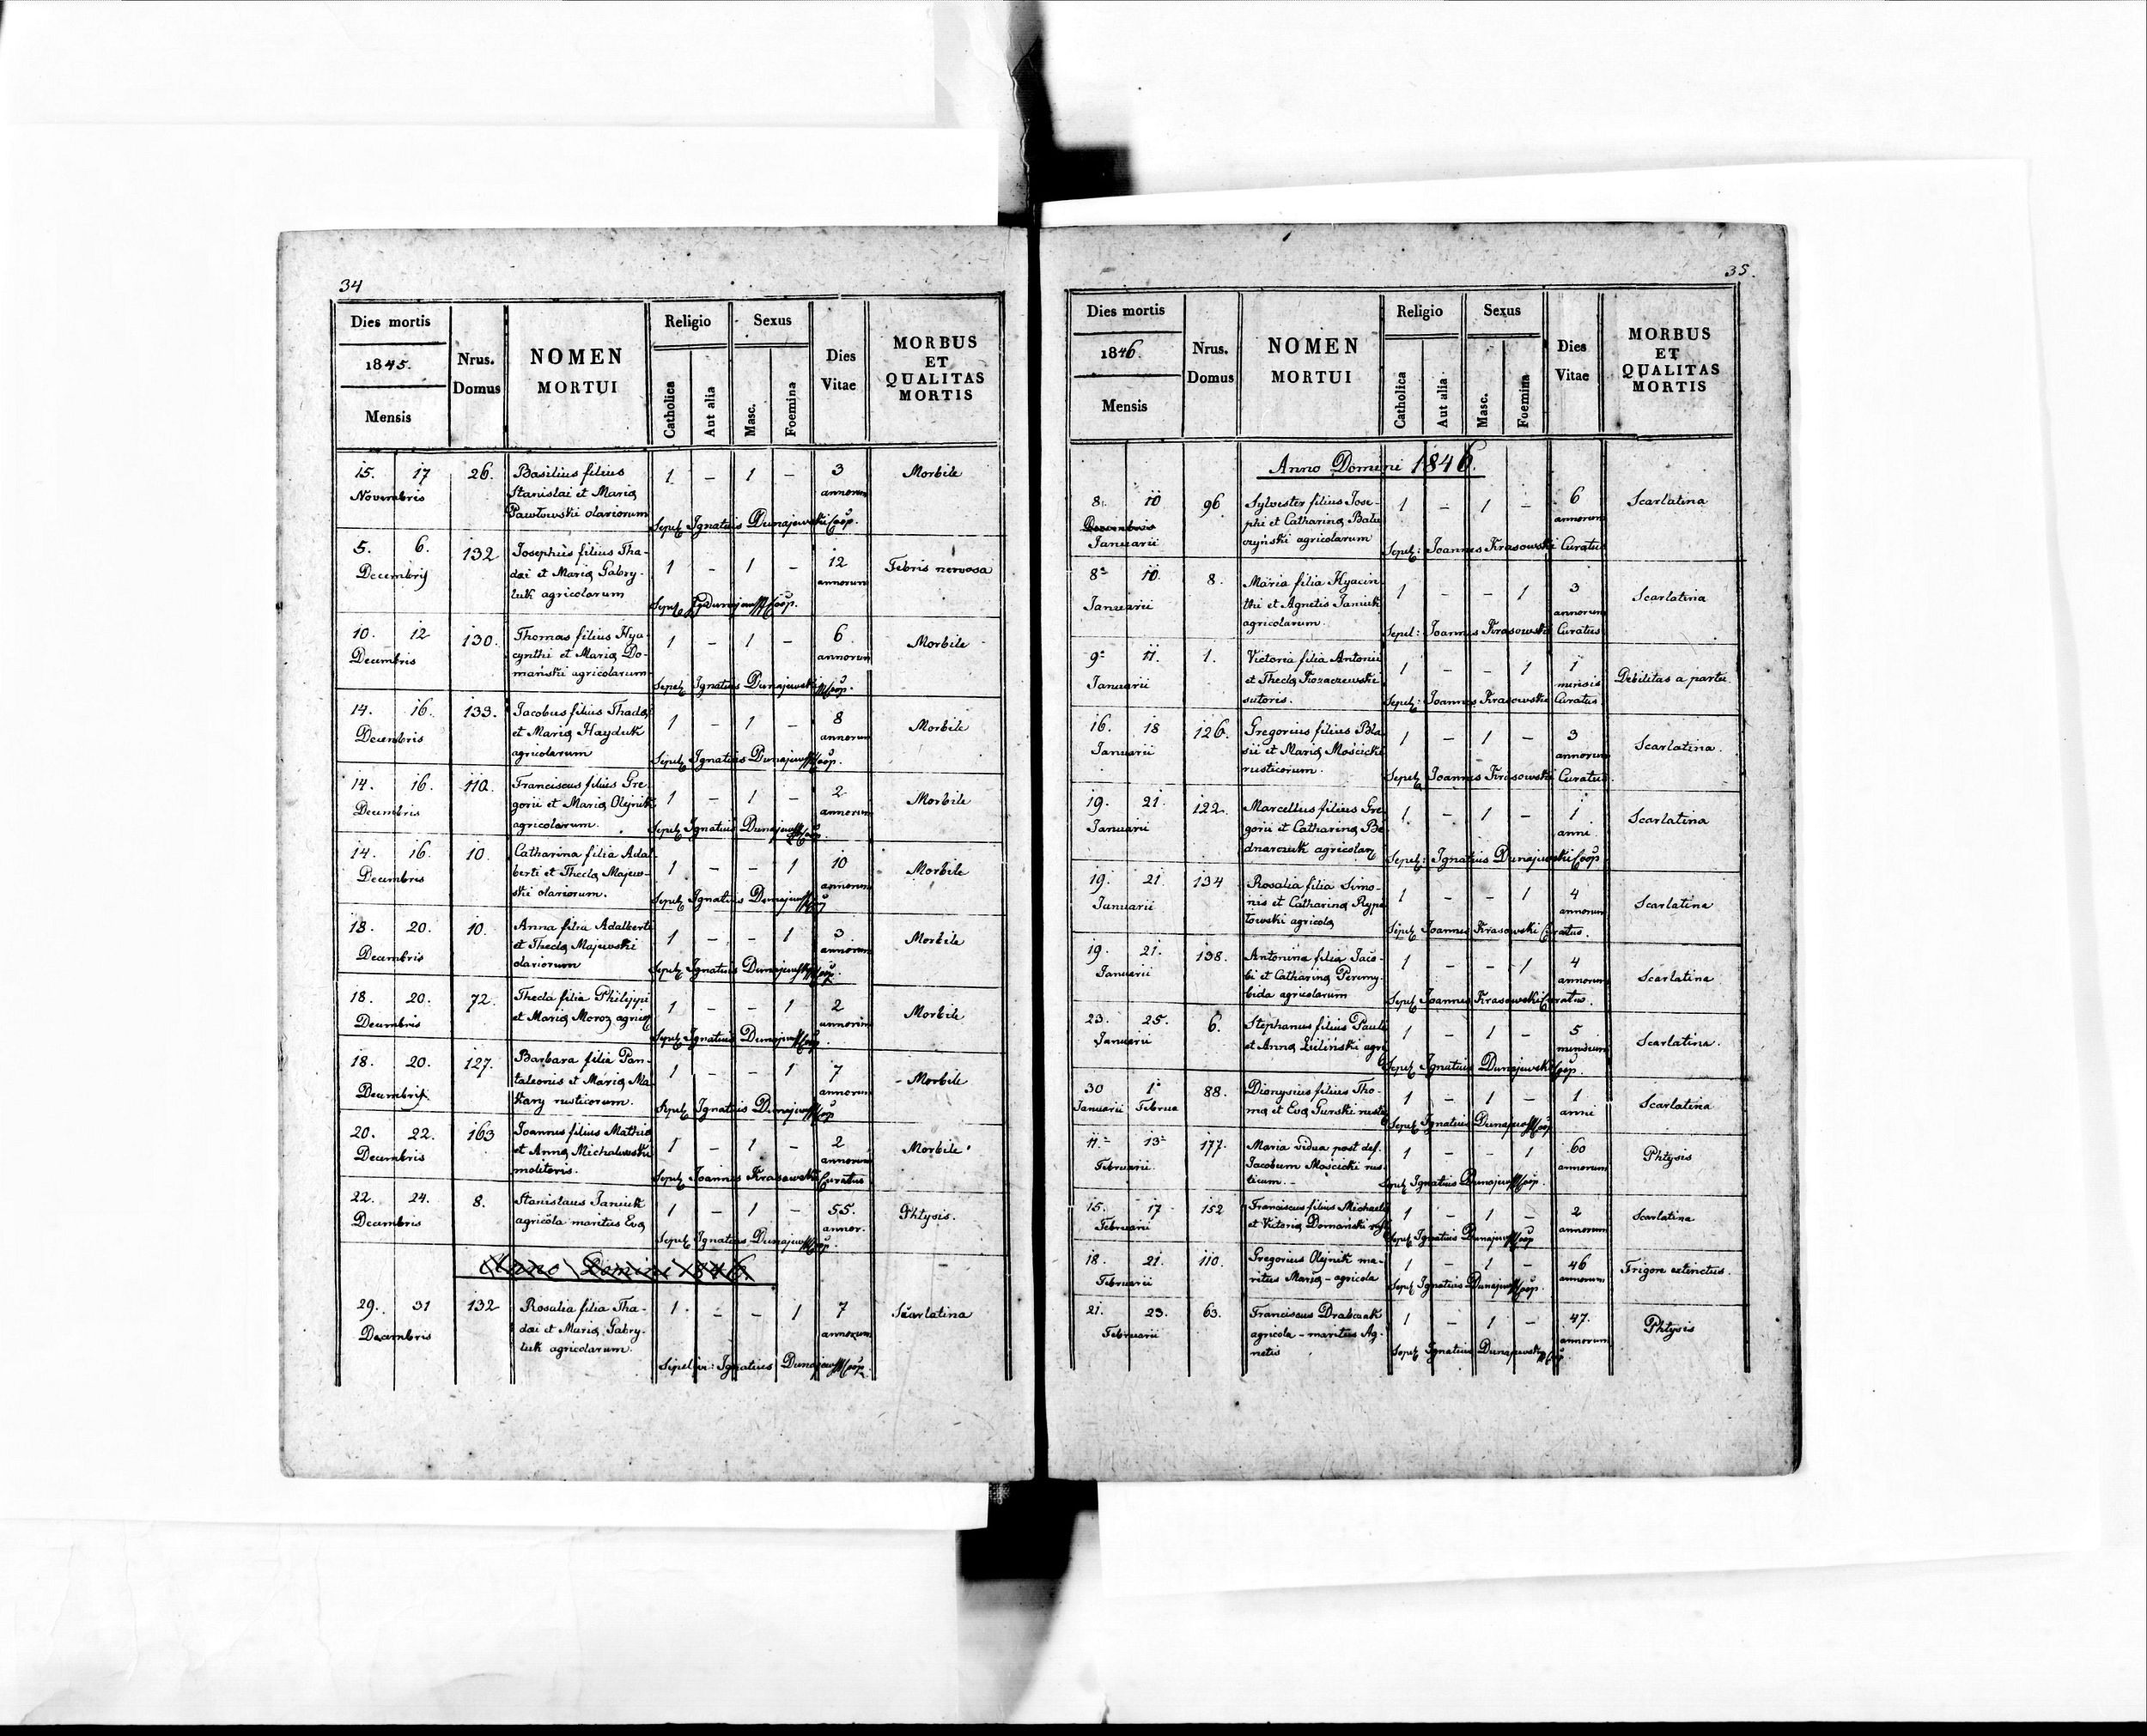 34
Dies mortis
1845.
Mensis
Nrus.
Domus
NOMEN
MORTUI
Religio
Catholica
Aut alia
Sexus
Masc.
Foemina
Dies
Vitae
MORBUS
ET
QUALITAS
MORTIS
15. 17 26. Basilius filius 1 – 1 – 3 Morbile
Novembris Stanislai et Maria annorum
Pawłowski olariorum Sepel Ignatius Dunajewski Coop.
5. 6. 132 Josephus filius Tha- 1 – 1 – 12 Febris nervosa
Decembris dai et Maria Gabry- annorum
luk agricolarum Sepel Ig Dunajewski Coop.
10. 12 130. Thomas filius Hya- 1 – 1 – 6 Morbile
Decembris cynthi et Maria Do- annorum
mański agricolarum Sepel Ignatius Dunajewski Coop.
14. 16. 133. Jacobus filius Thada 1 – 1 – 8 Morbile
Decembris et Maria Hayduk annorum
agricolarum Sepel Ignatius Dunajewski Coop.
14. 16. 110. Franciscus filius Gre- 1 – 1 – 2 Morbile
Decembris gorii et Maria Olejnik annorum
agricolarum. Sepel Ignatius Dunajewski Coop.
14. 16. 10. Catharina filia Adal- 1 – – 1 10 Morbile
Decembris berti et Thecla Majew- annorum
ski olariorum. Sepel Ignatius Dunajewski
18. 20. 10. Anna filia Adalberti 1 – – 1 3 Morbile
Decembris et Thecla Majewski annorum
olariorum Sepel Ignatius Dunajewski Coop.
18. 20. 72. Thecla filia Philippi 1 – – 1 2 Morbile
Decembris et Maria Moroz agrico annorum
Sepel Ignatius Dunajewski Coop
18. 20. 127. Barbara filia Pan- 1 – – 1 7 Morbile
Decembris taleonis et Maria Ma annorum
kary rusticorum. Sepel Ignatius Dunajewski Coop
20. 22. 163 Joannes filius Mathia 1 – 1 – 2 Morbile
Decembris et Anna Michalewski annorum
molitoris. Sepel Joannes Krasowski Curatus
22. 24. 8. Stanislaus Janiuk 1 – 1 – 55. Phtysis.
Decembris agricola maritus Eva annor.
Sepel Ignatius Dunajewski Coop
Anno Domini 1846.
29. 31 132 Rosalia filia Tha- 1. – – 1 7 Scarlatina
Decembris dai et Maria Gabry- annorum
luk agricolarum. Ignatius Dunajewski Coop.
35.
Dies mortis
1846.
Mensis
Nrus.
Domus
NOMEN
MORTUI
Religio
Catholica
Aut alia
Sexus
Masc.
Foemina
Dies
Vitae
MORBUS
ET
QUALITAS
MORTIS
Anno Domini 1846.
8. 10 96 Sylvester filius Jose- 1 – 1 – 6 Scarlatina
Decembris phi et Catharina annorum
Januarii agricolarum Sepel: Joannes Krasowski Curatus
8a 10. 8. Maria filia Hyacin 1 – – 1 3 Scarlatina
Januarii thi et Agnetis Janiuk annorum
agricolarum. Sepel: Joannes Krasowski Curatus
9a 11. 1. Victoria filia Antonii 1 – – 1 1 Debilitas a partu.
Januarii et Thecla Kozaczewski mensis
sutoris. Sepel: Joannes Krasowski Curatus
16. 18 126. Gregorius filius Bla 1 – 1 – 3 Scarlatina.
Januarii sii et Maria Mościcki annorum
rusticorum. Sepel Joannes Krasowski Curatus.
19. 21. 122. Marcellus filius Gre 1 – 1 – 1 Scarlatina
Januarii gorii et Catharina Be anni
dnarczuk agricolar Sepel: Ignatius Dunajewski Coop
19. 21 134 Rosalia filia Simo- 1 – – 1 4 Scarlatina
Januarii nis et Catharina annorum
agricola Sepel Joannes Krasowski Curatus.
19. 21. 138. Antonina filia Jaco- 1 – – 1 4 Scarlatina
Januarii bi et Catharina annorum
agricolarum Sepel Joannes Krasowski Curatus.
23. 25. 6. Stephanus filius Pauli 1 – 1 – 5 Scarlatina.
Januarii et Anna Żiliński agri mensium
Sepel Ignatius Dunajewski Coop.
30 1a 88. Dionysius filius Tho- 1 – 1 – 1 Scarlatina
Januarii Februa ma et Eva Gurski rusti anni
Sepel Ignatius Dunajewski Coop
11a 13a 177. Maria vidua post def. 1 – – 1 60 Phtysis
Februarii Jacobum Mościcki rus annorum
ticum. – Sepel Ignatius Dunajewski Coop.
15. 17 152 Franciscus filius Michaeli 1 – 1 – 2 Scarlatina
Februarii et Victoria Domański annorum
Sepel Ignatius Dunajewski Coop
18. 21. 110. Gregorius Olejnik ma- 1 – 1 – 46 Frigore extinctus.
Februarii ritus Maria – agricola annorum
Sepel Ignatius Dunajewski Coop.
21. 23. 63. Franciscus Drabczak 1 – 1 – 47. Phtysis
Februarii agricola – maritus Ag- annorum
netis Sepel Ignatius Dunajewski Coop.